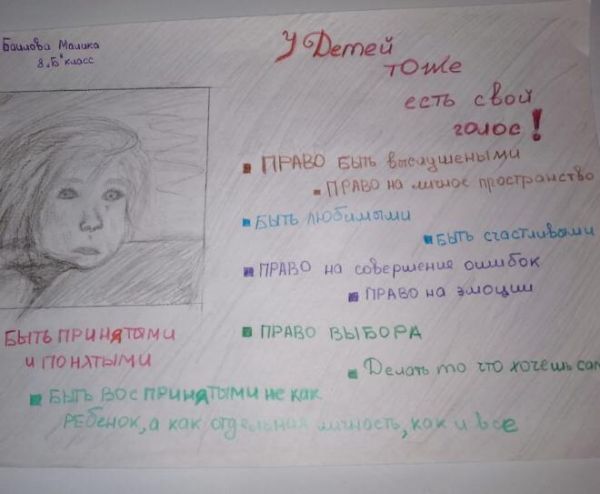 Баилова Малика
8 „Б" класс
У Детей
тоже
есть свой
голос!
ПРАВО БЫТЬ выслушеными
ПРАВО НА личное пространство
БЫТЬ любимыми
БЫТЬ счастливыми
ПРАВО на совершение ошибок
ПРАВО на эмоции
БЫТЬ ПРИНЯТЫМИ
и ПОНЯТЫМИ
ПРАВО ВЫБОРА
Делать то что хочешь сам
БЫТЬ ВОСПРИНЯТЫМИ не как
РЕбенок, а как отдельная личность, как и все